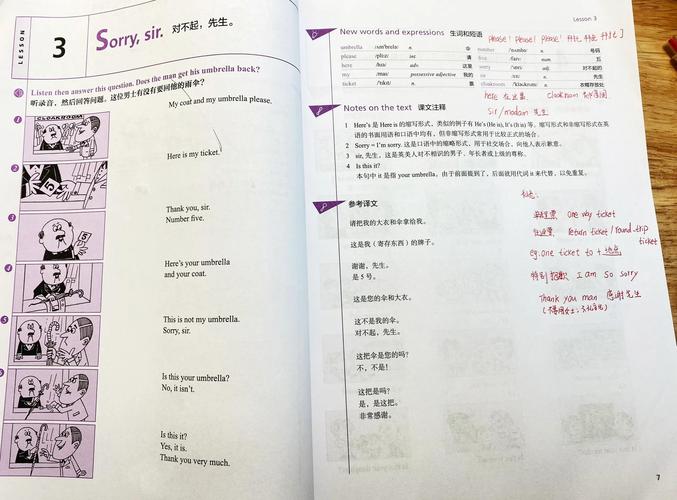 LESSON
3
Sorry, sir. 对不起，先生。
Listen then answer this question. Does the man get his umbrella back?
听录音，然后回答问题。这位男士有没有要回他的雨伞？
CLOAKROOM
My coat and my umbrella please.
1
Here is my ticket.
2
Thank you, sir.
Number five.
3
5
Here's your umbrella
and your coat.
4
This is not my umbrella.
Sorry, sir.
5
Is this your umbrella?
No, it isn't.
Is this it?
Yes, it is.
Thank you very much.
Lesson 3
New words and expressions 生词和短语
Please! Please! Please!
umbrella n. 伞
please int. 请
here adv. 这里
my possessive adjective 我的
ticket n. 票
number n. 号码
five num. 五
sorry adj. 对不起的
sir n. 先生
cloakroom n. 衣帽存放处
here 在这里 Cloakroom
Sir/madam 先生
Notes on the text 课文注释
1 Here's 是 Here is 的缩写形式。类似的例子有 He's (He is), It's (It is) 等。缩写形式和非缩写形式在英
语的书面用语和口语中均有，但非缩写形式常用于比较正式的场合。
2 Sorry = I'm sorry. 这是口语中的缩略形式，用于社交场合，向他人表示歉意。
3 sir, 先生，这是英美人对不相识的男子、年长者或上级的尊称。
4 Is this it?
本句中 it 是指 your umbrella, 由于前面提到了，后面就用代词 it 来代替，以免重复。
参考译文
请把我的大衣和伞拿给我。
这是我（寄存东西）的牌子。
谢谢，先生。
是 5 号。
这是您的伞和大衣。
这不是我的伞。
对不起，先生。
这把伞是您的吗？
不，不是！
这把是吗？
是，是这把。
非常感谢。
one way ticket
return ticket/round trip
ticket
eg: one ticket to + 地点
特别抱歉 I am so sorry
Thank you man 感谢先生
7